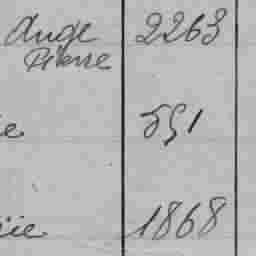 Ange 2263
Pierre
e 551
ïe 1868